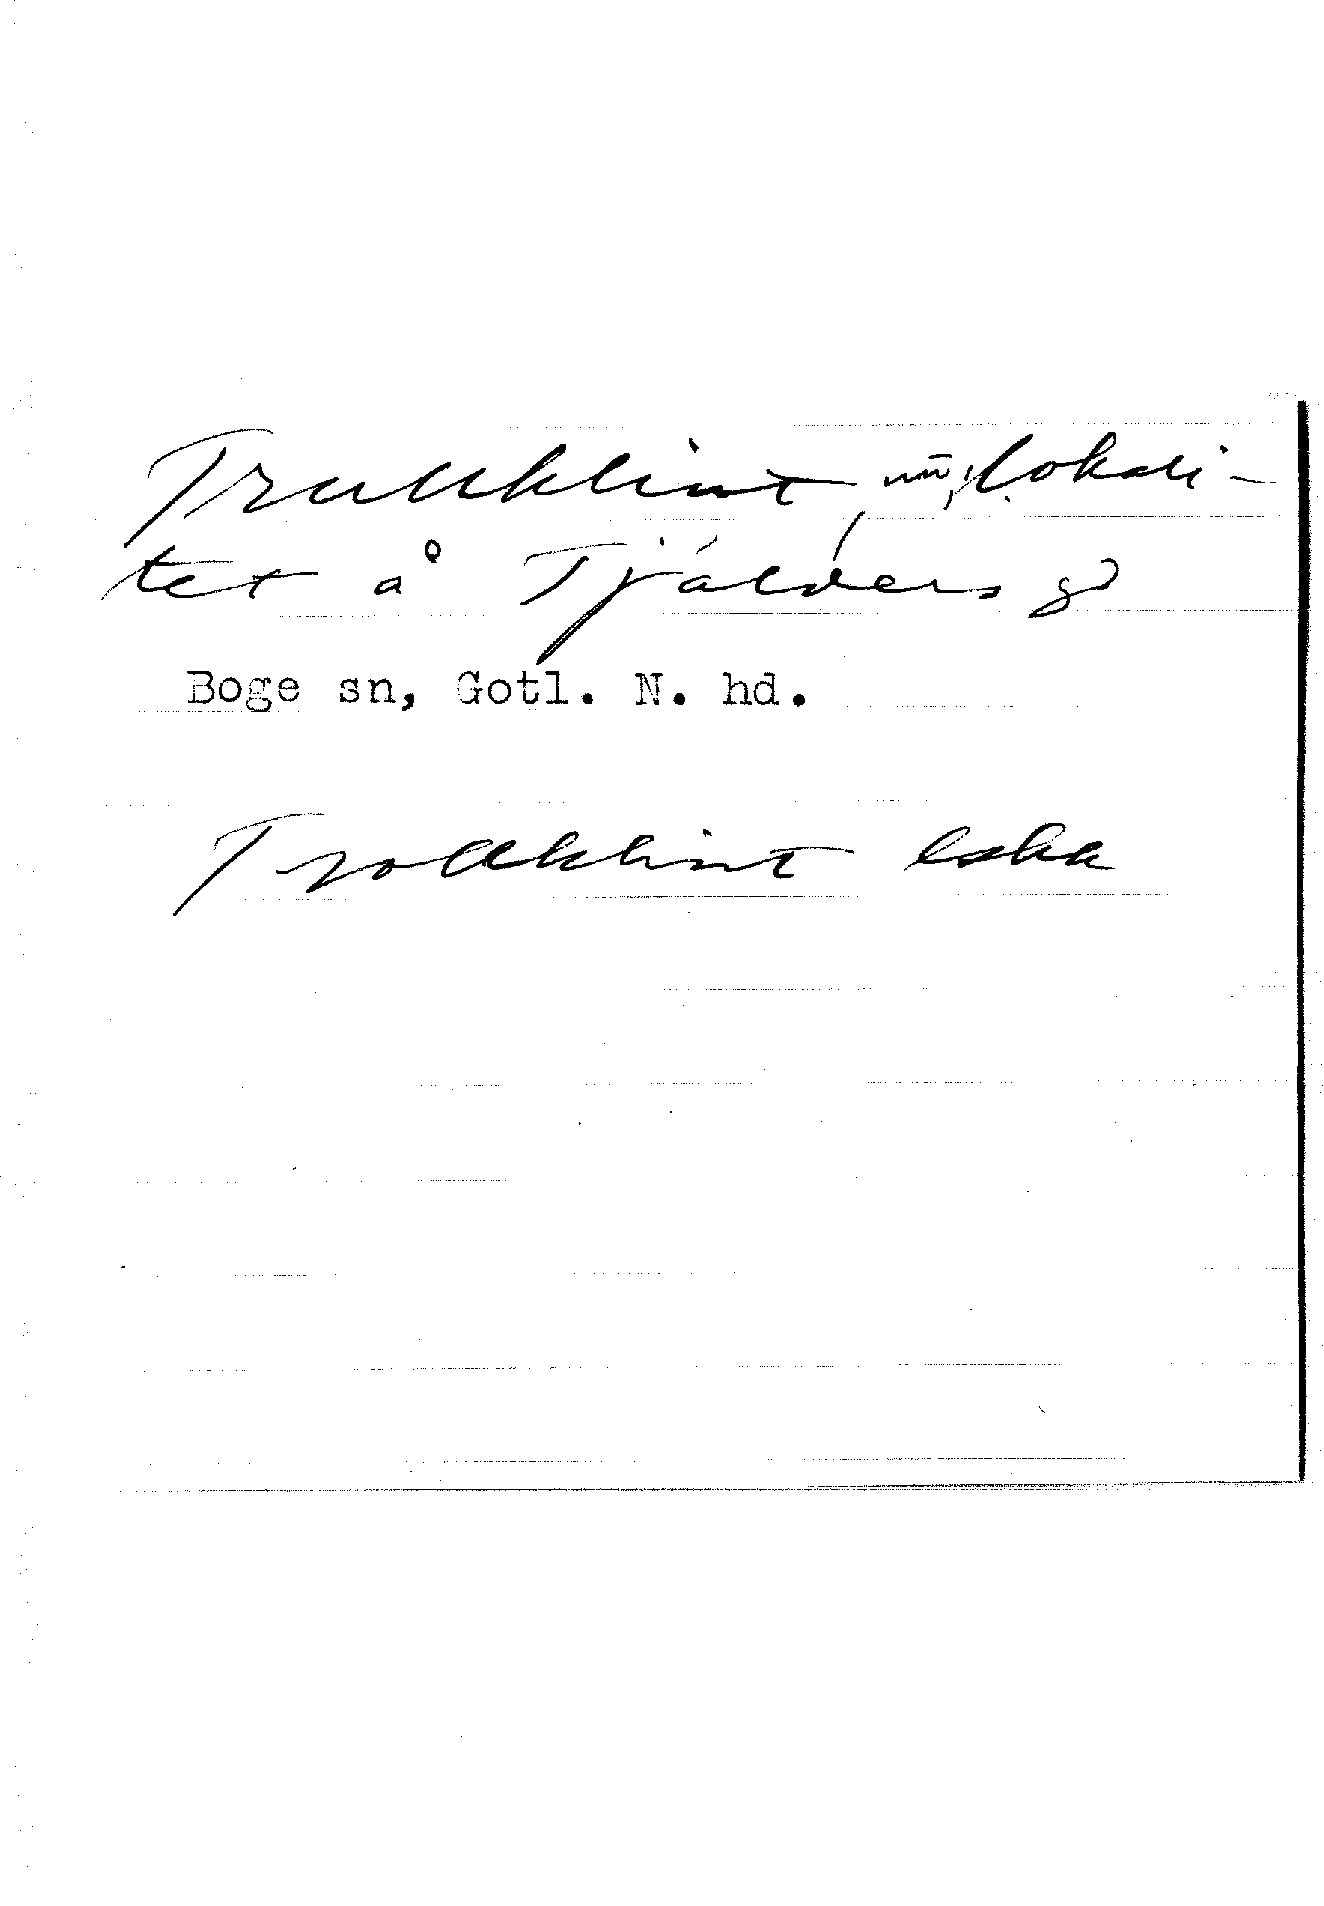 Trullklint, lokali-
tet å Tjälders gd
Boge sn, Gotl. N. hd.
Trollklint eska